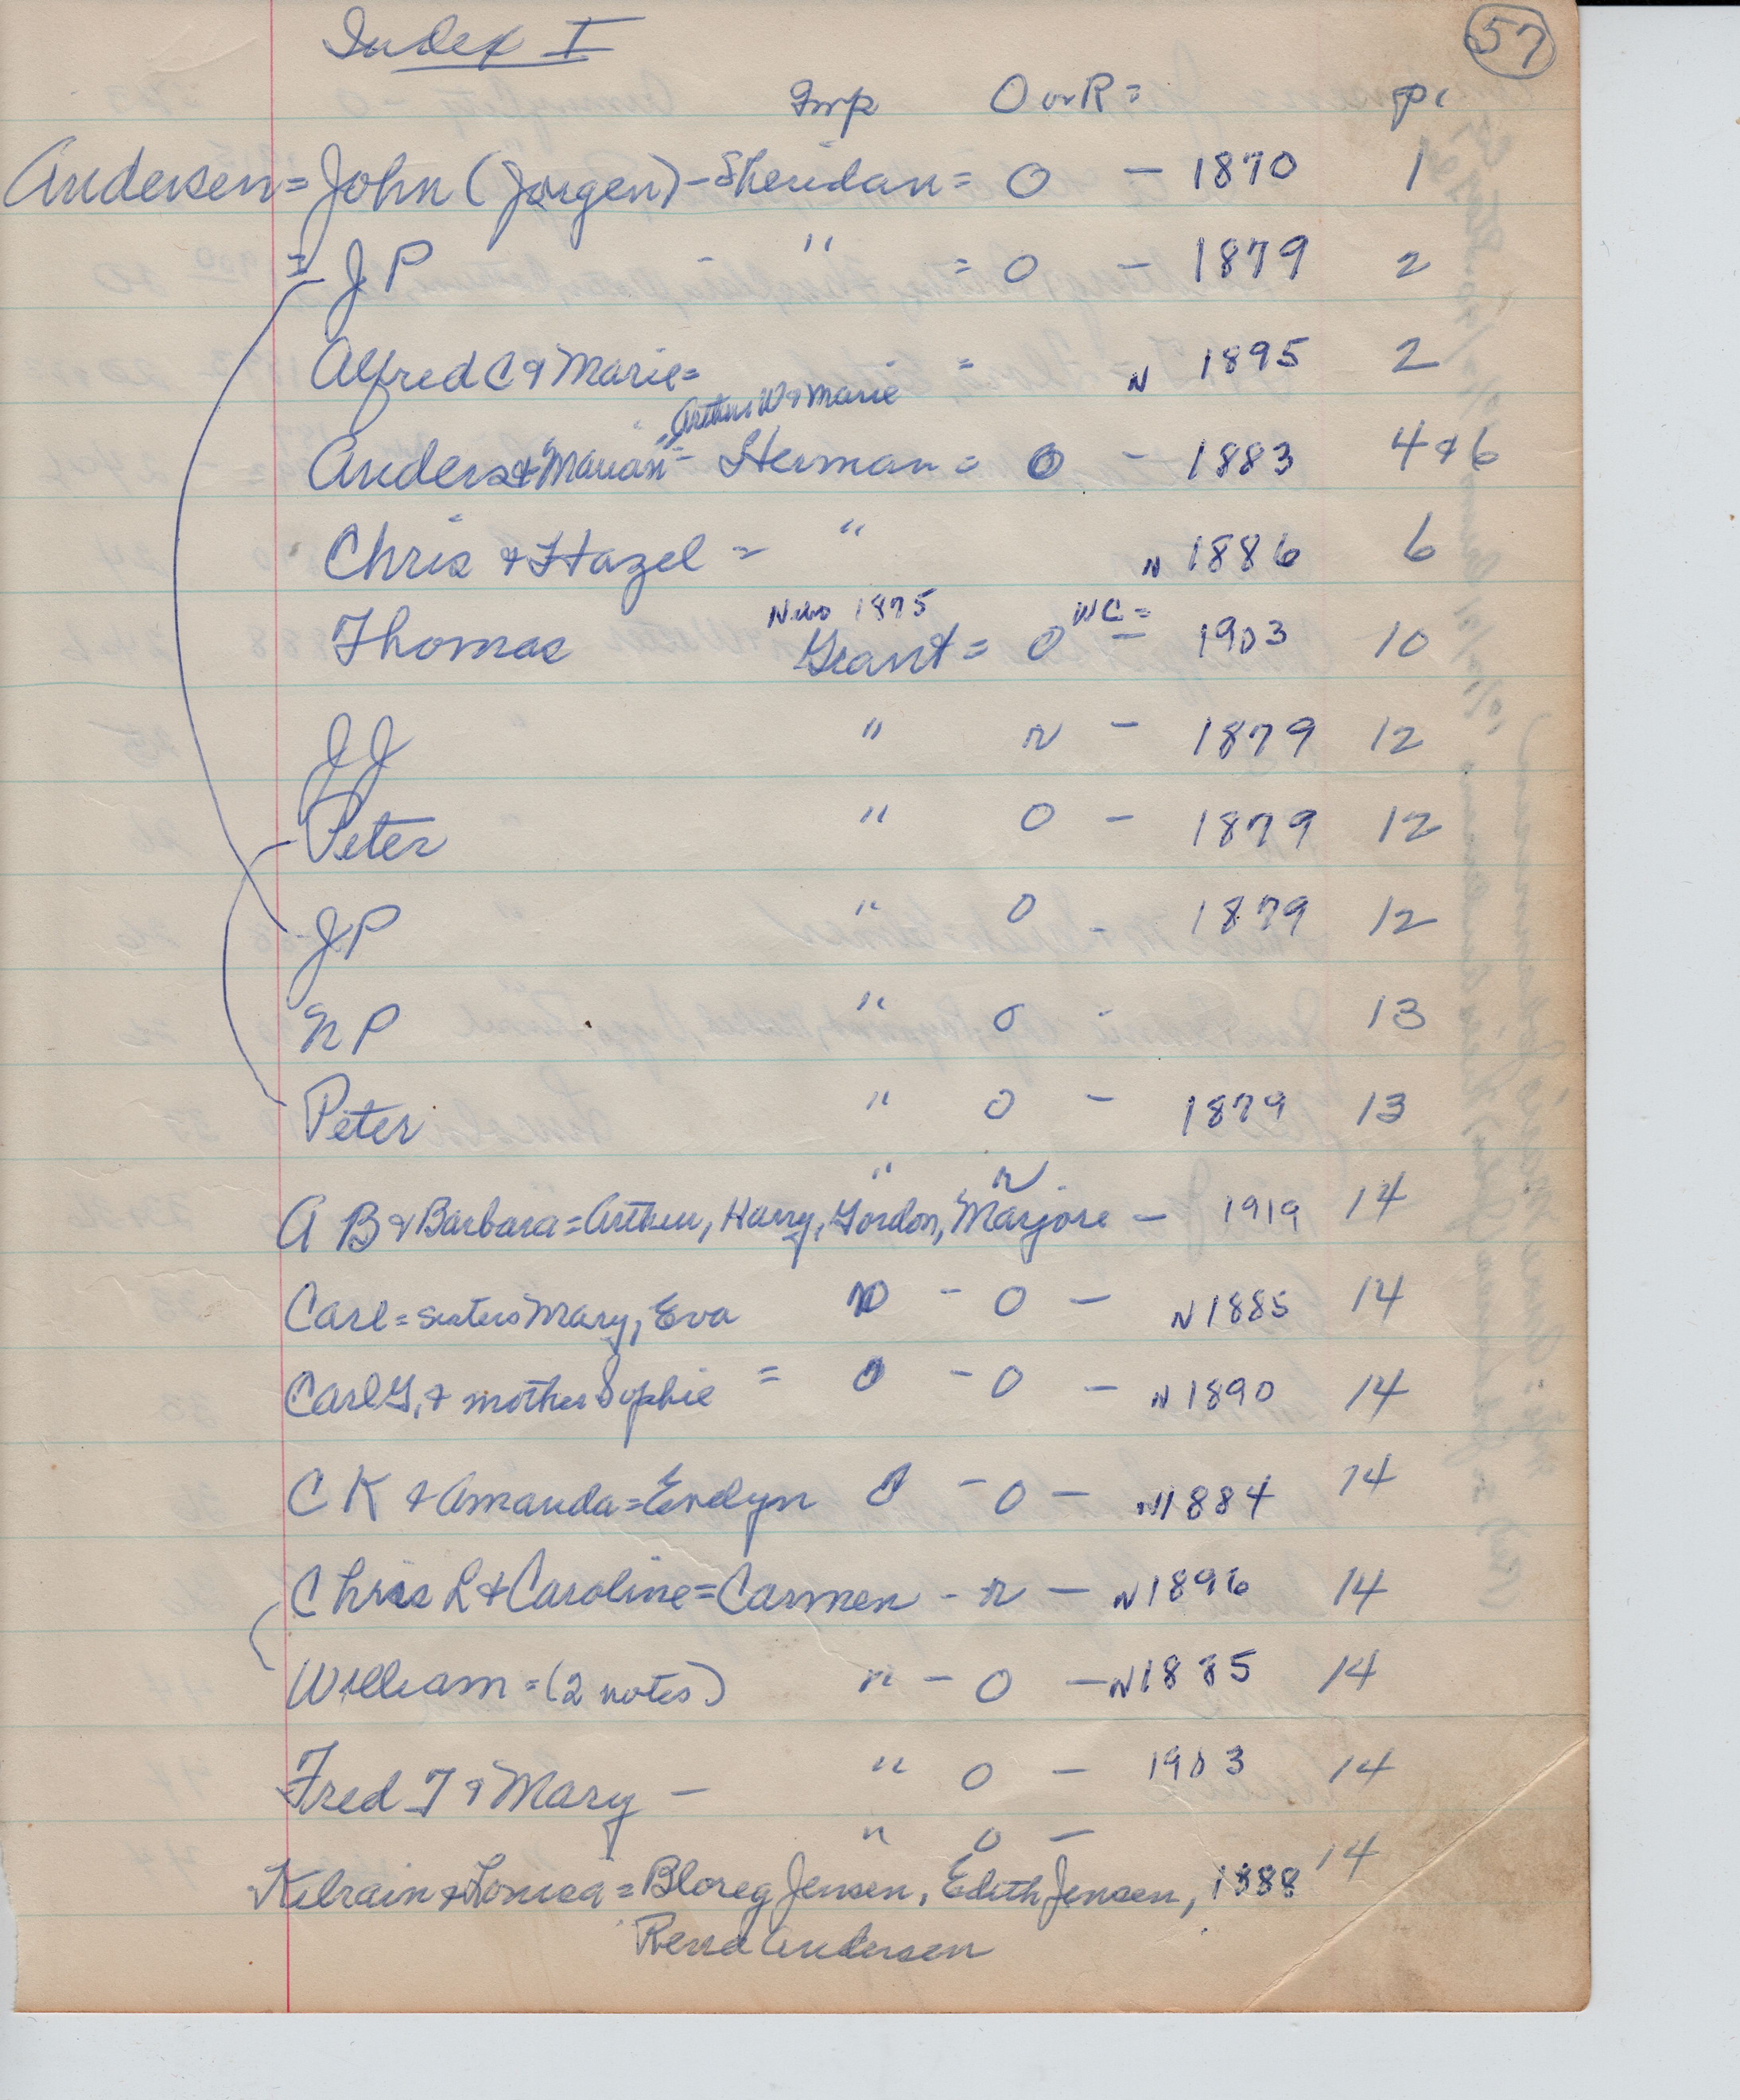 57
Index I
Twp O or R = p.
Andersen = John (Jorgen) - Sheridan = O - 1870 1
= J P - " = O - 1879 2
Alfred C & Marie = = N 1895 2
" Arthur W & Marie
Anders & Marian - Herman = O - 1883 4 & 6
Chris & Hazel = " N 1886 6
Nebr 1875 WC =
Thomas Grant = O - 1903 10
J J " r - 1879 12
Peter " O - 1879 12
J P " O - 1879 12
N P " O - 13
Peter " O - 1879 13
" r
A B & Barbara = Arthur, Harry, Gordon, Marjore - 1919 14
Carl = sisters Mary, Eva - O - N 1885 14
Carl G, & mother Sophie = O - O - N 1890 14
C K & Amanda = Evelyn O - O - N 1884 14
Chris L & Caroline = Carmen - r - N 1896 14
William = (2 notes) " - O - N 1885 14
Fred T & Mary - " O - 1903 14
" O -
Kilrain & Louisa = Bloreg Jensen, Edith Jensen, 1888 14
Rena Andersen